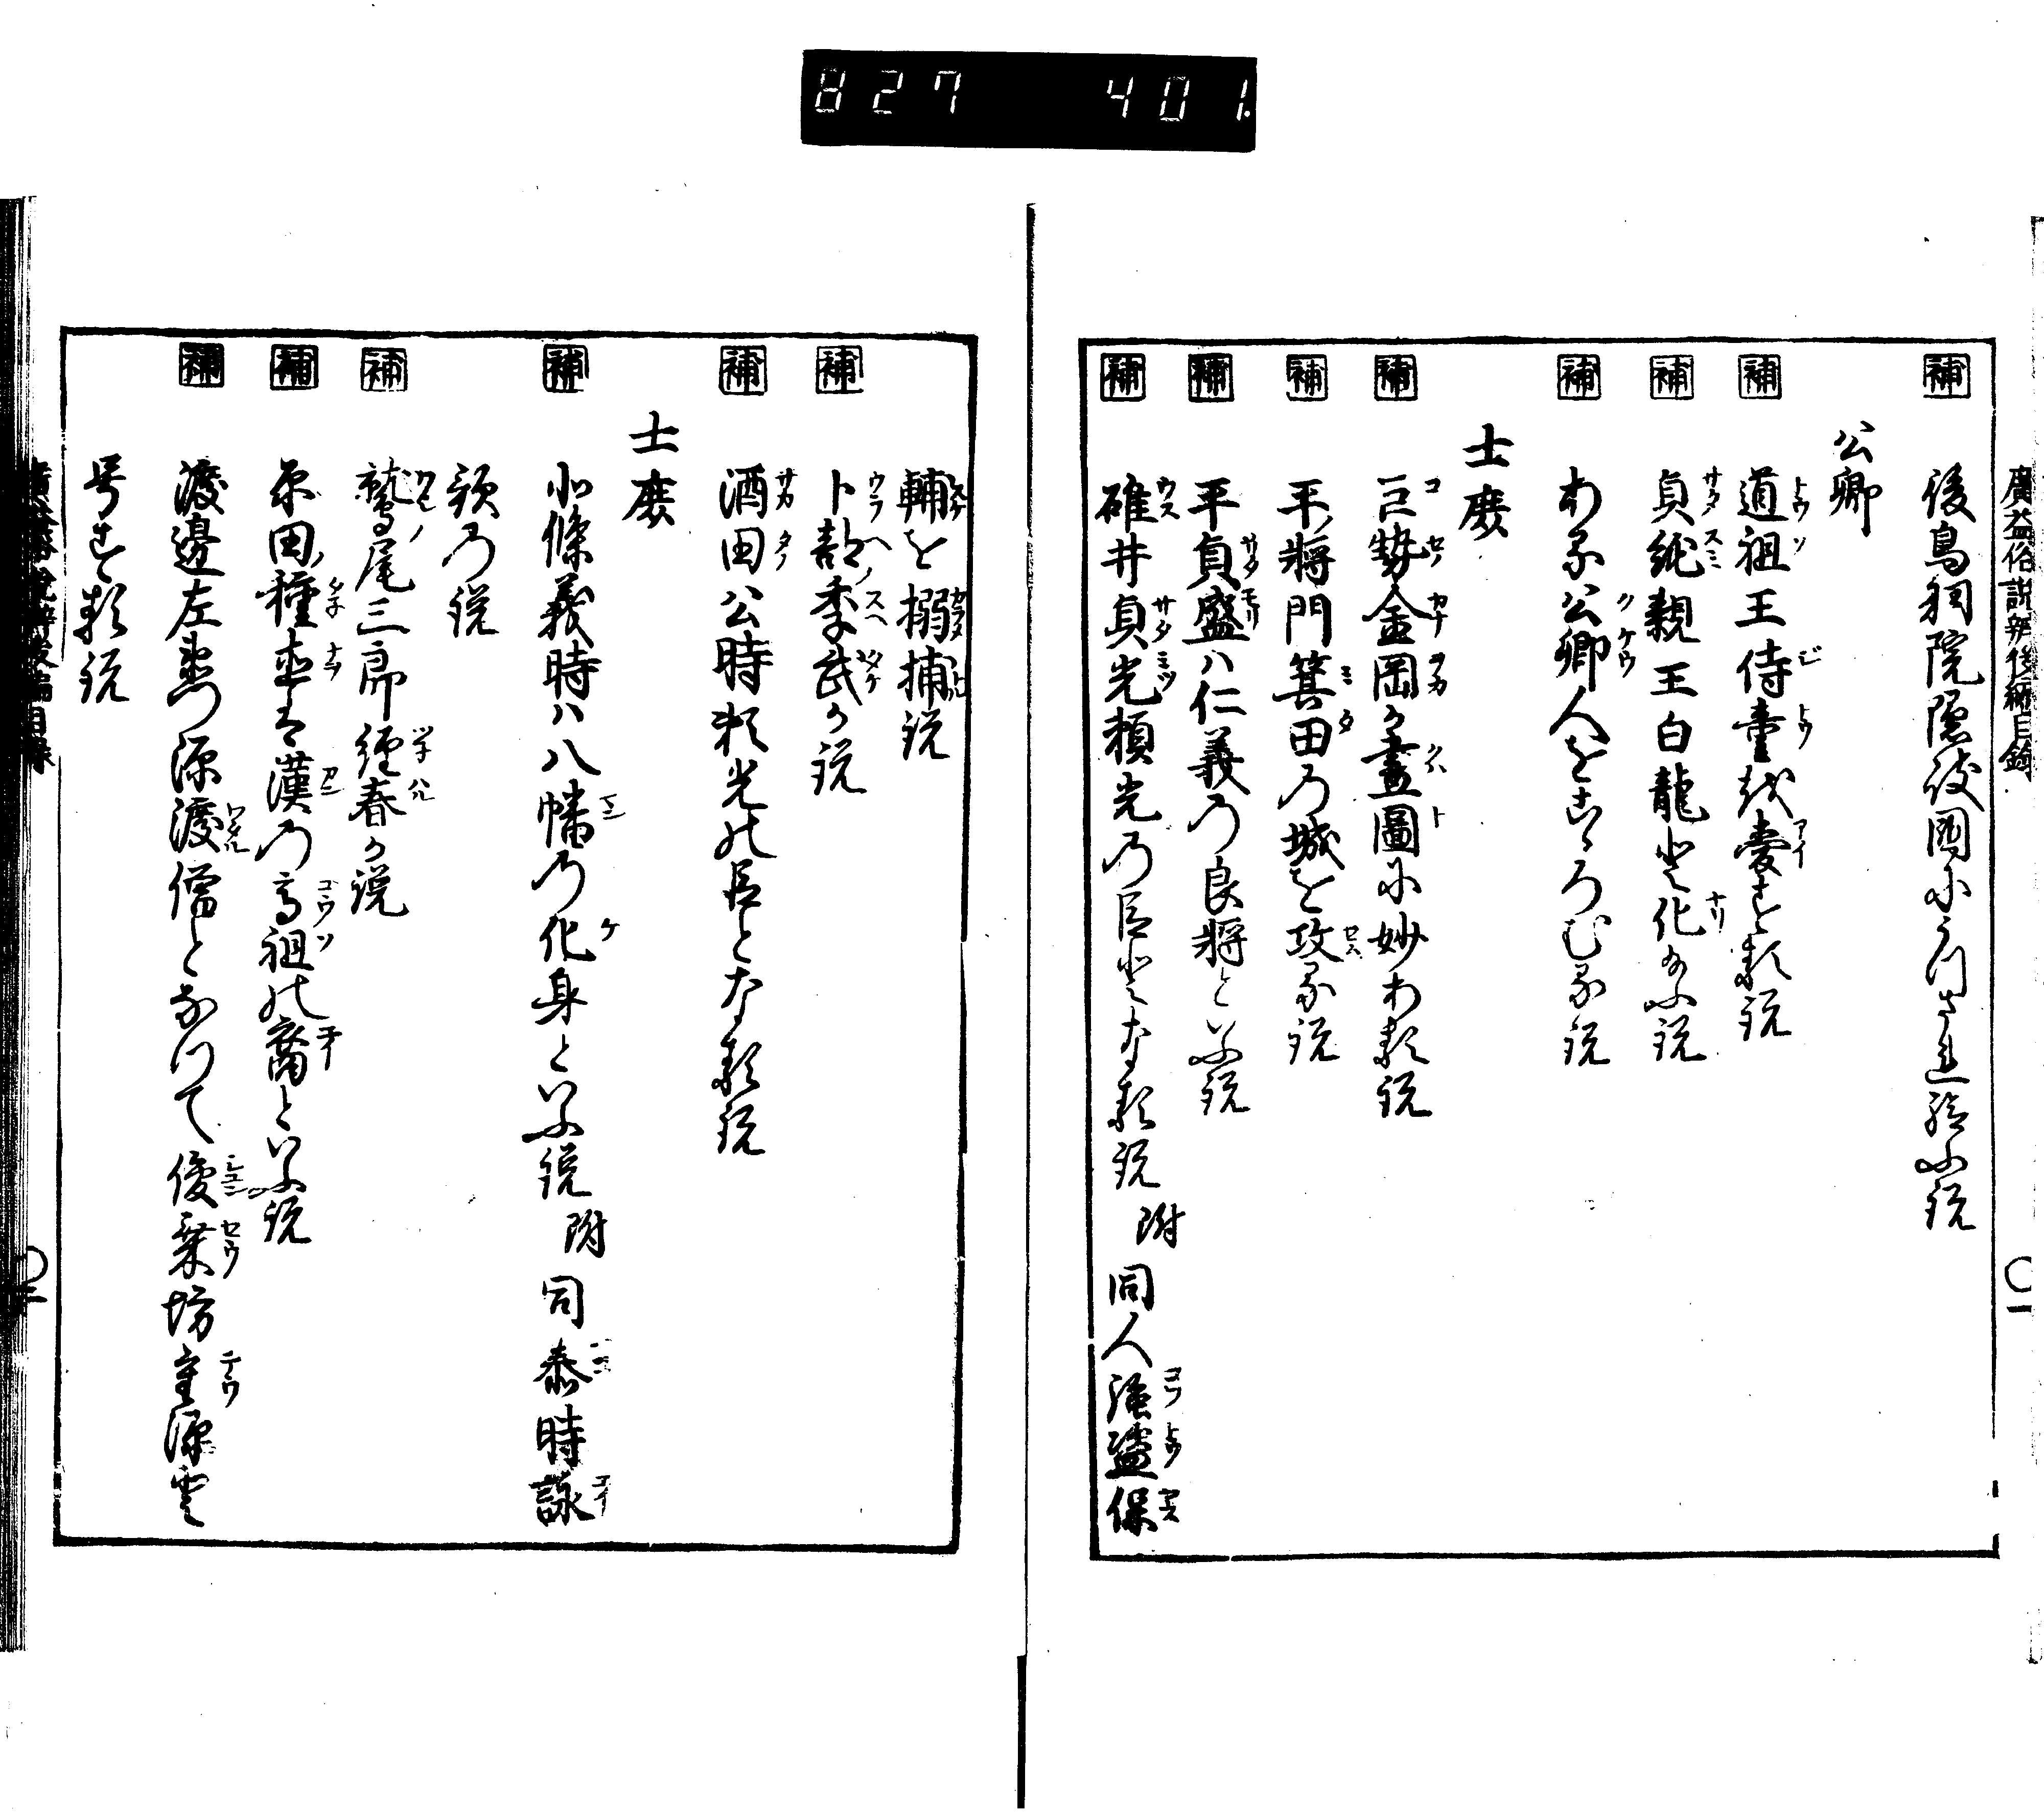 827 401.
廣益俗説辨後編目録
補 後鳥羽院隠岐國にうつされ給ふ説
公卿
補 道祖王侍童を愛する説
補 貞純親王白龍と化給ふ説
補 ある公卿人をこゝろむる説
士庶
補 巨勢金岡が畫圖に妙ある説
補 平將門箕田の城を攻る説
補 平貞盛ハ仁義の良將といふ説
補 碓井貞光頼光の臣となる説 附 同人強盗保
〇一
輔を搦捕説
補 卜部季武が説
補 酒田公時頼光の臣となる説
士庶
補 北條義時ハ八幡の化身といふ説 附 同泰時詠
歌の説
補 鷲尾三郎經春が説
補 原田種直は漢の高祖の裔といふ説
補 渡邊左衛門源渡僧となりて俊乗坊重源と
号する説